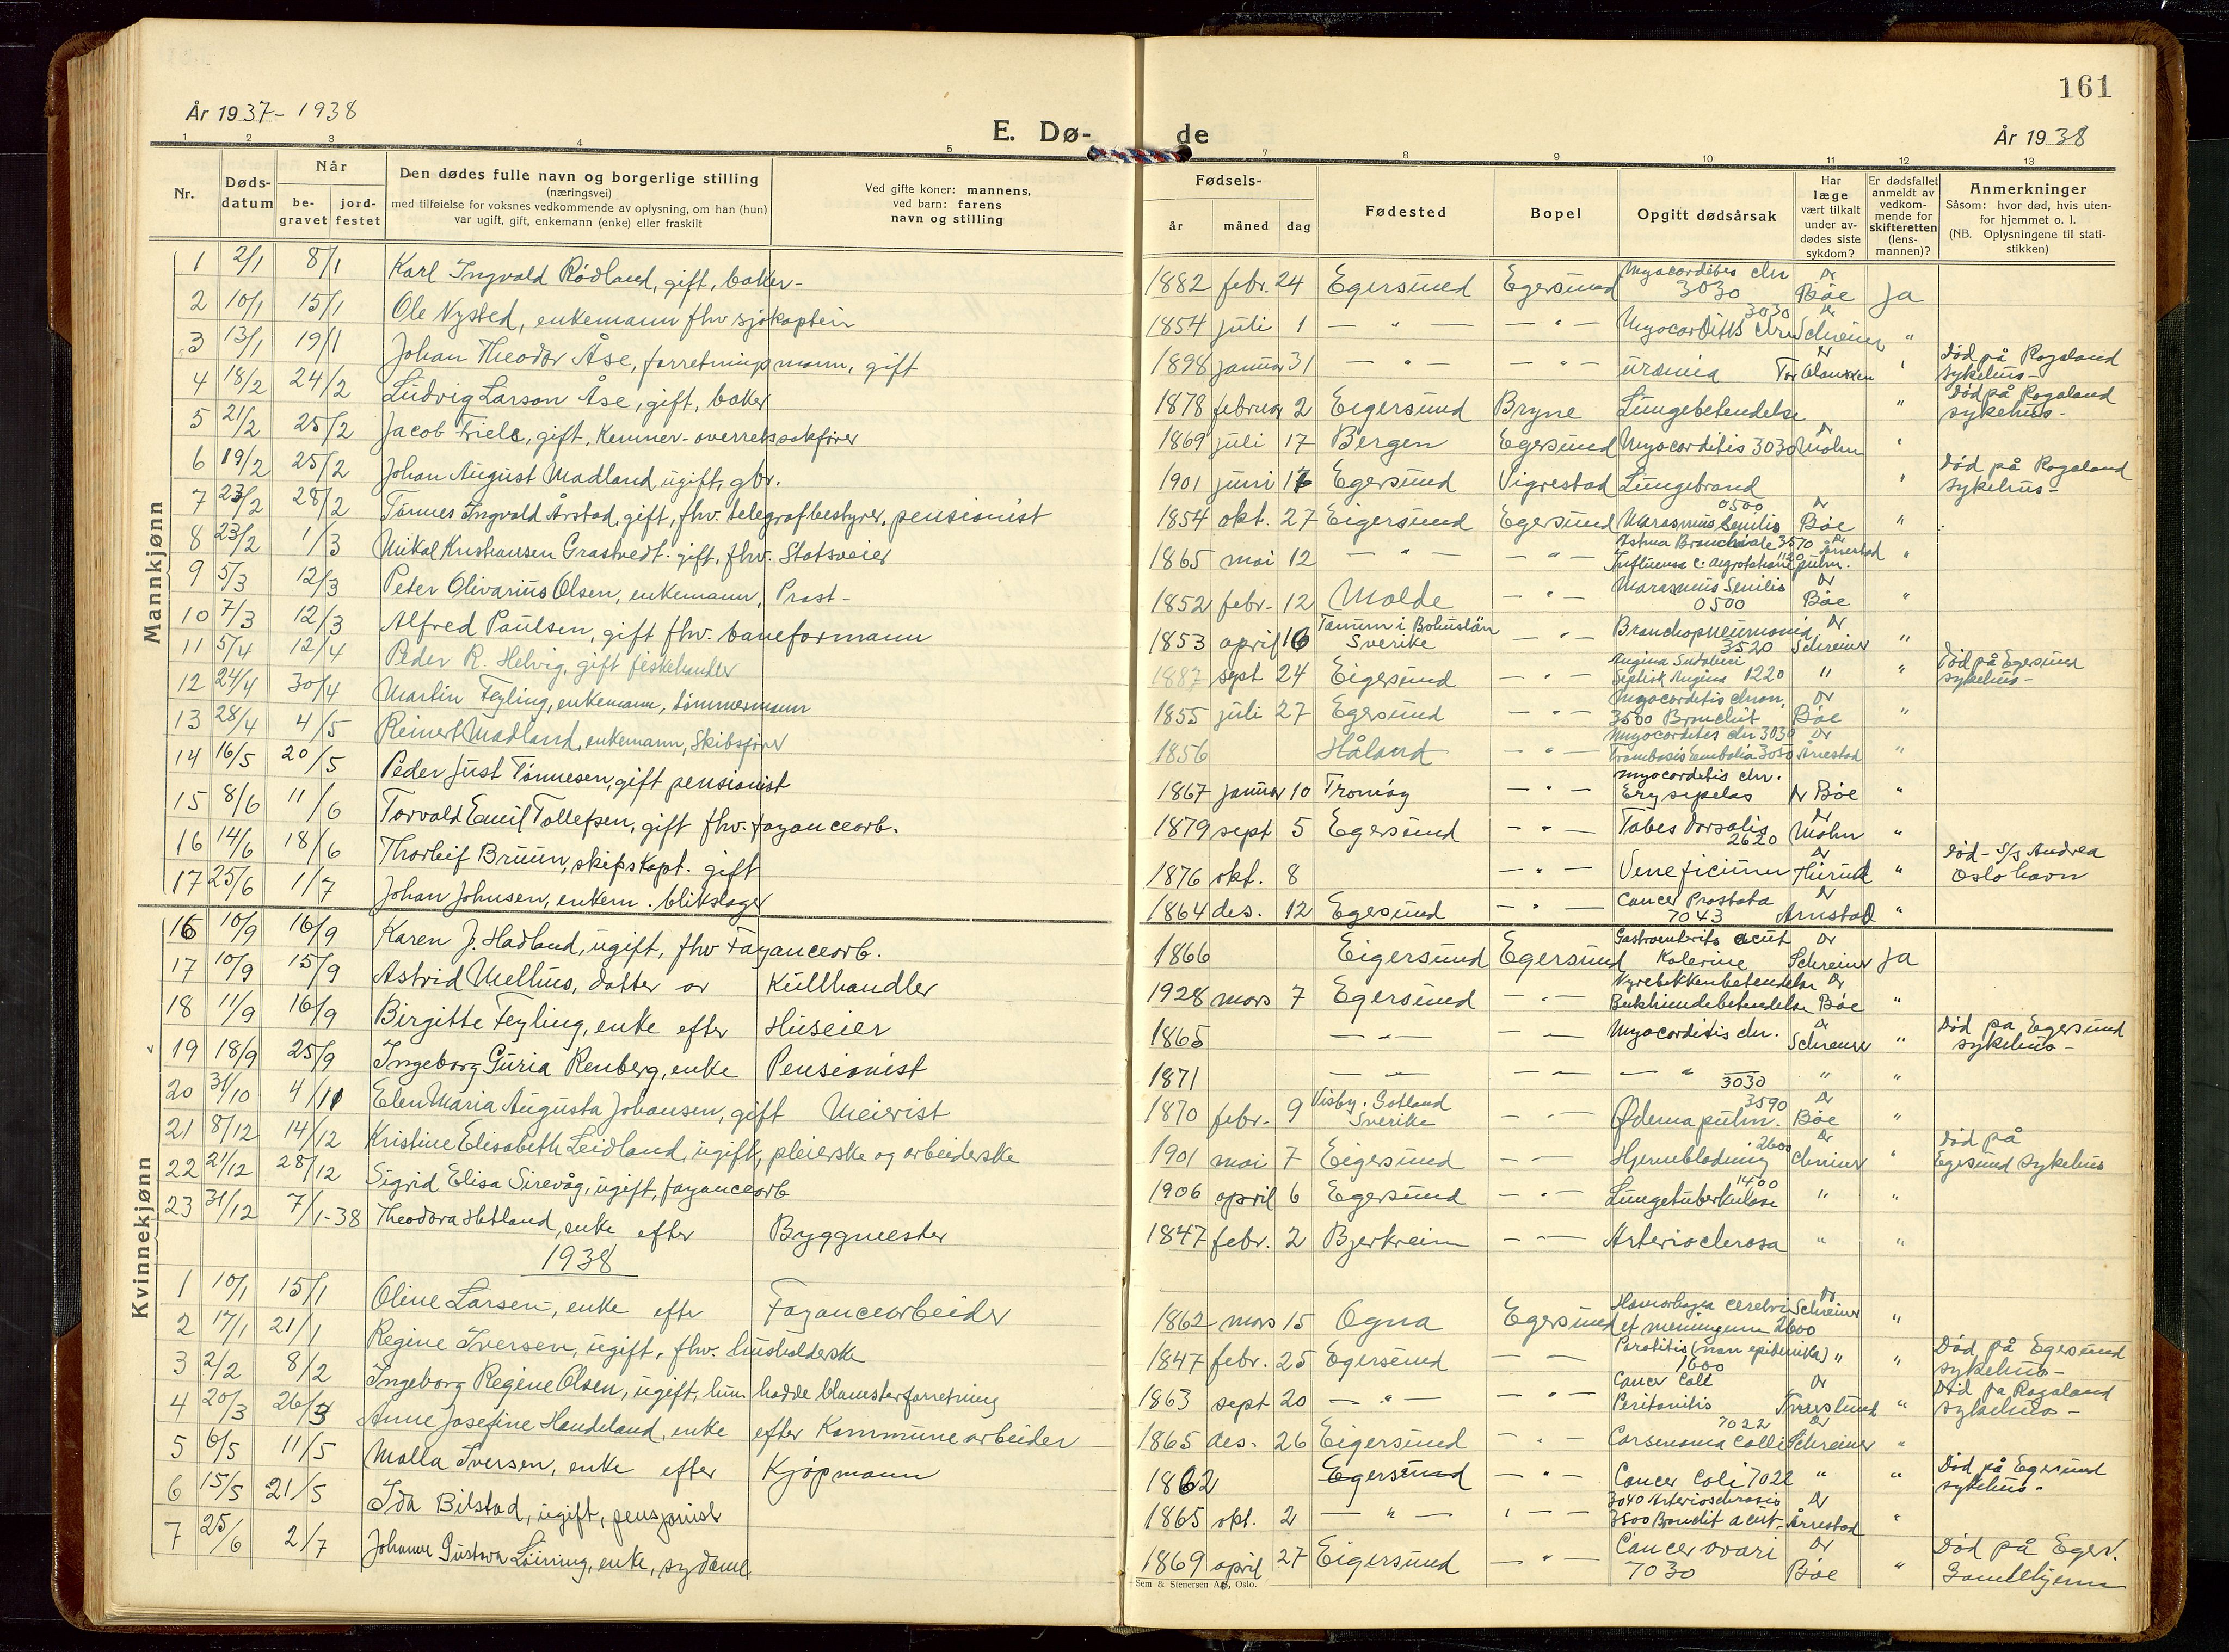 161
År 1937-1938
E. Dø-de
År 1938
1 2 3 4 5 7 8 9 10 11 12 13
Nr.
Døds-datum
Når
be-gravet
jord-festet
Den dødes fulle navn og borgerlige stilling
(næringsvei)
med tilføielse for voksnes vedkommende av oplysning, om han (hun)
var ugift, gift, enkemann (enke) eller fraskilt
Ved gifte koner: mannens,
ved barn: farens
navn og stilling
Fødsels-
år måned dag
Fødested
Bopel
Opgitt dødsårsak
Har læge vært tilkalt under av-dødes siste sykdom?
Er dødsfallet anmeldt av vedkom-mende for skifteretten (lens-mannen)?
Anmerkninger
Såsom: hvor død, hvis uten-
for hjemmet o. l.
(NB. Oplysningene til stati-
stikken)
Mannkjønn
1 2/1 8/1 Karl Ingvald Rødland, gift, baker- 1882 febr. 24 Egersund Egersund Myocarditis chr 3030 Dr Bøe Ja
2 10/1 15/1 Ole Nysted, enkemann fhv sjøkaptein 1854 juli 1 — " — — " — Myocarditis chr 3030 Dr Schreiner "
3 13/1 19/1 Johan Theodor Åse, forretningsmann, gift 1898 januar 31 — " — — " — uræmia Dr " Død på Rogaland sykehus-
4 18/2 24/2 Ludvig Larson Åse, gift, baker 1878 februar 2 Eigersund Bryne Lungebetendelse " Død på Rogaland sykehus-
5 21/2 25/2 Jacob Friele, gift, Kemner-overretssakfører 1869 juli 17 Bergen Egersund Myocarditis 3030 Dr Mohn "
6 19/2 25/2 Johan August Madland ugift, gbr. 1901 juni 17 Egersund Vigrestad Lungebrand " Død på Rogaland sykehus-
7 23/2 28/2 Tønnes Ingvald Årstad, gift, fhv. telegrafbestyrer, pensionist 1854 okt. 27 Eigersund Egersund 0500 Marasmus Senilis Dr Bøe "
8 23/2 1/3 Mikal Kristiansen Grastvedt. gift, fhv. Statsveier 1865 mai 12 — " — — " — Astma Bronchiale 3570 Influensa c. 1120 pulm. Dr Årrestad "
9 5/3 12/3 Peter Olivarius Olsen, enkemann, Prost- 1852 febr. 12 Molde — " — Marasmus Senilis 0500 Dr Bøe "
10 7/3 12/3 Alfred Paulsen, gift fhv. baneformann 1853 april 16 Tanum i Bohuslän Sverike — " — Bronchopneumonia 3520 Dr Schreiner "
11 5/4 12/4 Peder R. Helvig, gift fiskehandler 1887 sept 24 Eigersund — " — Angina Septisk Angina 1220 " " Død på Egersund sykehus-
12 24/4 30/4 Martin Feyling, enkemann, tømmermann 1855 juli 27 Egersund — " — Myocarditis chron, 3500 Bronchit Dr Bøe "
13 28/4 4/5 Reinert Madland, enkemann, Skibsfører 1856 Håland — " — Myocarditis chr 3030 Trombosis Embolia 3050 Dr Årrestad "
14 16/5 20/5 Peder Just Tønnesen, gift pensionist 1867 januar 10 Tromøy — " — Myocarditis chr. Erysipelas Dr Bøe "
15 8/6 11/6 Torvald Emil Tollefsen, gift fhv. fayancearb. 1879 sept 5 Egersund — " — Tabes Dorsalis 2620 Dr Mohn "
16 14/6 18/6 Thorleif Bruun, skipskapt. gift 1876 okt. 8 — " — Veneficium Dr " Død - S/S Andrea Oslo havn
17 25/6 1/7 Johan Johnsen, enkem. blikslager 1864 des. 12 Egersund — " — Cancer Prostata 7043 Dr Arnstad "
Kvinnekjønn
16 10/9 16/9 Karen J. Hadland, ugift, fhv Fayancearb. 1866 Eigersund Egersund Gastroenterits acut Kolerine Dr Schreiner Ja
17 10/9 15/9 Astrid Mellhus, datter av Kullhandler 1928 mars 7 Egersund — " — Nyrebekkenbetendelse Bukhindebetendelse Dr Bøe "
18 11/9 16/9 Birgitte Feyling, enke efter Huseier 1865 — " — — " — Myocarditis chr. Dr Schreiner " Død på Egersund sykehus-
19 18/9 25/9 Ingeborg Guria Renberg, enke Pensionist 1871 — " — — " — — " — 3030 " "
20 31/10 4/11 Elen Maria Augusta Johansen, gift Meierist 1870 febr. 9 Visby. Gotland Sverike — " — 3590 Ødema pulm. Dr Bøe "
21 8/12 14/12 Kristine Elisabeth Leidland, ugift, pleierske og arbeiderske 1901 mai 7 Eigersund — " — Hjerneblødning 2600 Dr Schreiner " Død på Egersund sykehus
22 21/12 28/12 Sigrid Elisa Sirevåg, ugift, fayancearb 1906 april 6 Egersund — " — 1400 Lungetuberkulose " "
23 31/12 7/1-38 Theodora Hetland, enke efter Byggmester 1847 febr. 2 Bjerkreim — " — Arteriosclerosa " "
1938
1 10/1 15/1 Oline Larsen, enke eftr Fayancearbeider 1862 mars 15 Ogna Egersund Hæmorhagia cerebri et meningum 2600 Dr Schreiner "
2 17/1 21/1 Regine Iversen, ugift, fhv. husholderske 1847 febr. 25 Egersund — " — Parotitis (non epidemika) 1600 " " Død, på Egersund sykehus-
3 2/2 8/2 Ingeborg Regine Olsen, ugift, hun hadde blomsterforretning 1863 sept 20 — " — — " — Cancer Coli Peritonitis Dr " Død på Rogaland sykehus-
4 20/3 26/3 Anne Josefine Handeland, enke efter Kommunearbeider 1865 des. 26 Eigersund — " — 7022 Carsenoma Colli Dr Schreiner "
5 6/5 11/5 Malla Iversen, enke efter Kjøpmann 1862 Egersund — " — Cancer Coli 7022 " " Død på Egersund sykehus-
6 15/5 21/5 Ida Bilstad, ugift, pensjonist 1865 okt. 2 — " — — " — 3040 Arteriosclerosis 3500 Bronchit acut- Dr Årrestad "
7 25/6 2/7 Johanne Gustava Løining, enke, sydame 1869 april 27 Eigersund — " — Cancer ovari 7030 Dr Bøe " Død på Egers. Gamlehjem
Sem & Stenersen A/S, Oslo.